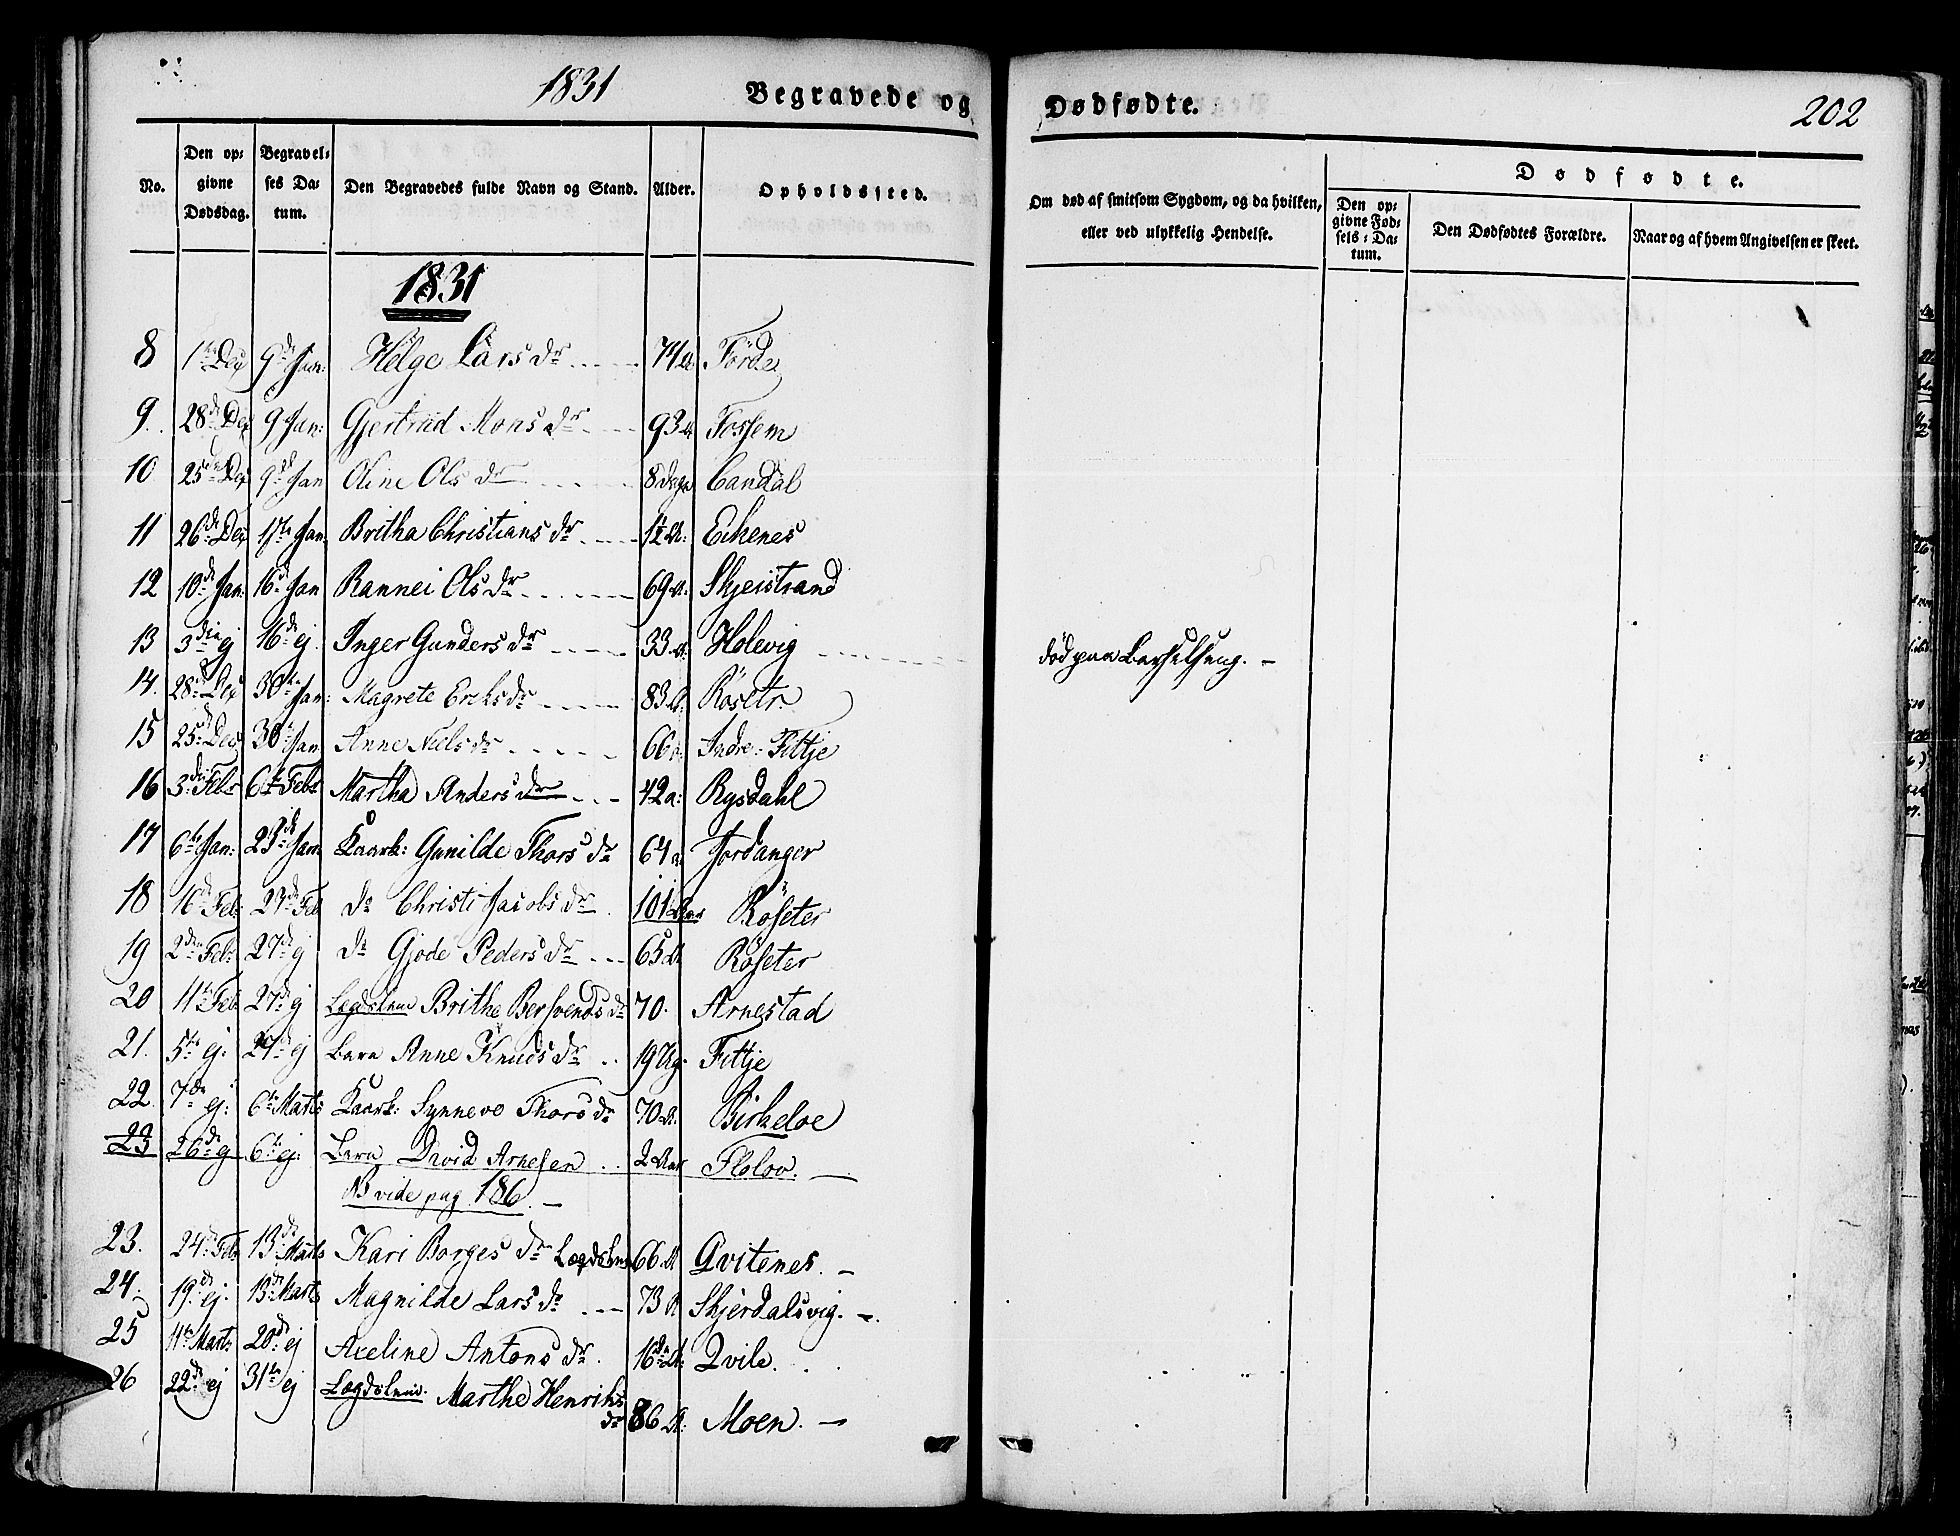 1831 Begravede og Dødfødte. 202
No. Den opgivne Dødsdag. Begravelses Datum. Den Begravedes fulde Navn og Stand. Alder. Opholdssted. Om død af smitsom Sygdom, og da hvilken, eller ved ulykkelig Hendelse. Dødfødte. Den opgivne Fødsels-Datum. Den Dødfødtes Forældre. Naar og af hvem Angivelsen er skeet.
1831
8 1te Dec 9de Jan: Helge Lars dr 74 A Förde
9. 28de Dec 9 Jan: Gjertrud Mons dr 93 A Fossem
10 25de Dec 9de Jan Oline Ols dr 8 dage Candal
11 26de Dec 17te Jan Britha Christians dr 1½ A: Eikenes
12 10de Jan: 16de Jan Rannei Ols dr 69 A: Skjeistrand
13 3die ej 16de ej. Inger Gunders dr 33 A: Holevig død paa Barselseng. –
14. 28de Dec 30te Jan: Magrete Eriks dr 83 A. Röset
15 25de Dec 30te Jan Anne Niels dr 66 a: Indre: Fittje
16 3die Febr 6te Febr Martha Anders dr 42 a: Rysdahl
17 6te Jan: 23de Jan: Kaark: Gunilde Thors dr 64 a Jordanger
18 16de Feb 27de Feb do Christi Jacobs dr 101 Aar Röseter
19 2den Feb: 27de ej do Gjøde Peders dr 65 A Röseter
20 11te Feb 27de ej Lægdslem Brithe Bersvends dr 70. Arnestad
21. 5te ej. 27de ej Barn Anne Knuds dr 19 Ug. Fittje
22. 7de ej: 6te Marts Kaark: Synneve Thors dr 70 A: Birkeloe
23 26de ej 6te ej. Barn David Arnesen 2 Aar Flolov. –
NB vide pag 186. –
23. 24de Feb 13de Marts Kari Borges dr Lægdslem 66 A Gvitenes. –
24. 19de ej. 13de Marts Magnilde Lars dr 73 A Skjerdalsvig. –
25 11te Marts 20de ej Axeline Antons dr. 16 A: Qvile.
26 22de ej 31te ej Lægdslem. Marthe Henriks dr 86 A: Moen. –